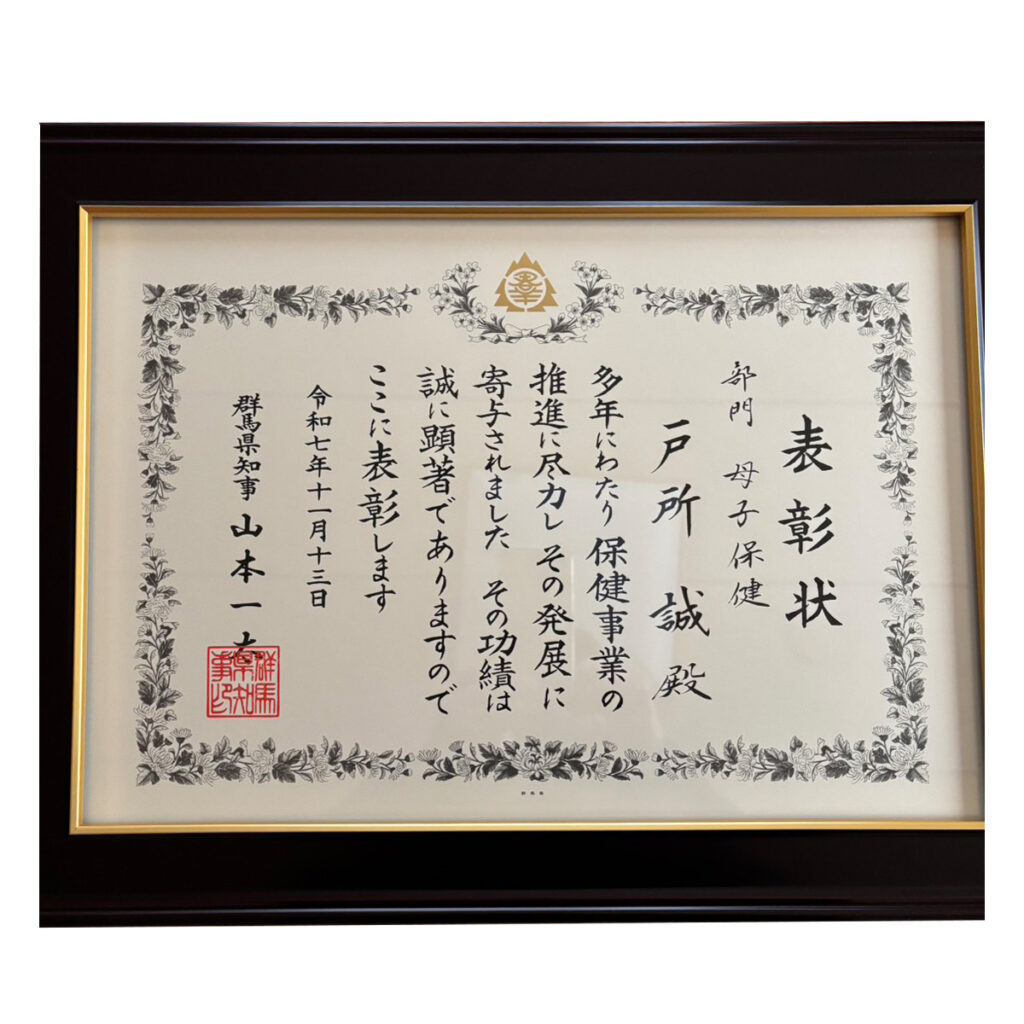 表彰状
部門 母子保健
戸所 誠 殿
多年にわたり 保健事業の
推進に尽力し その発展に
寄与されました その功績は
誠に顕著でありますので
ここに表彰します
令和七年十一月十三日
群馬県知事 山本一太
群馬
県知
事印
群馬県